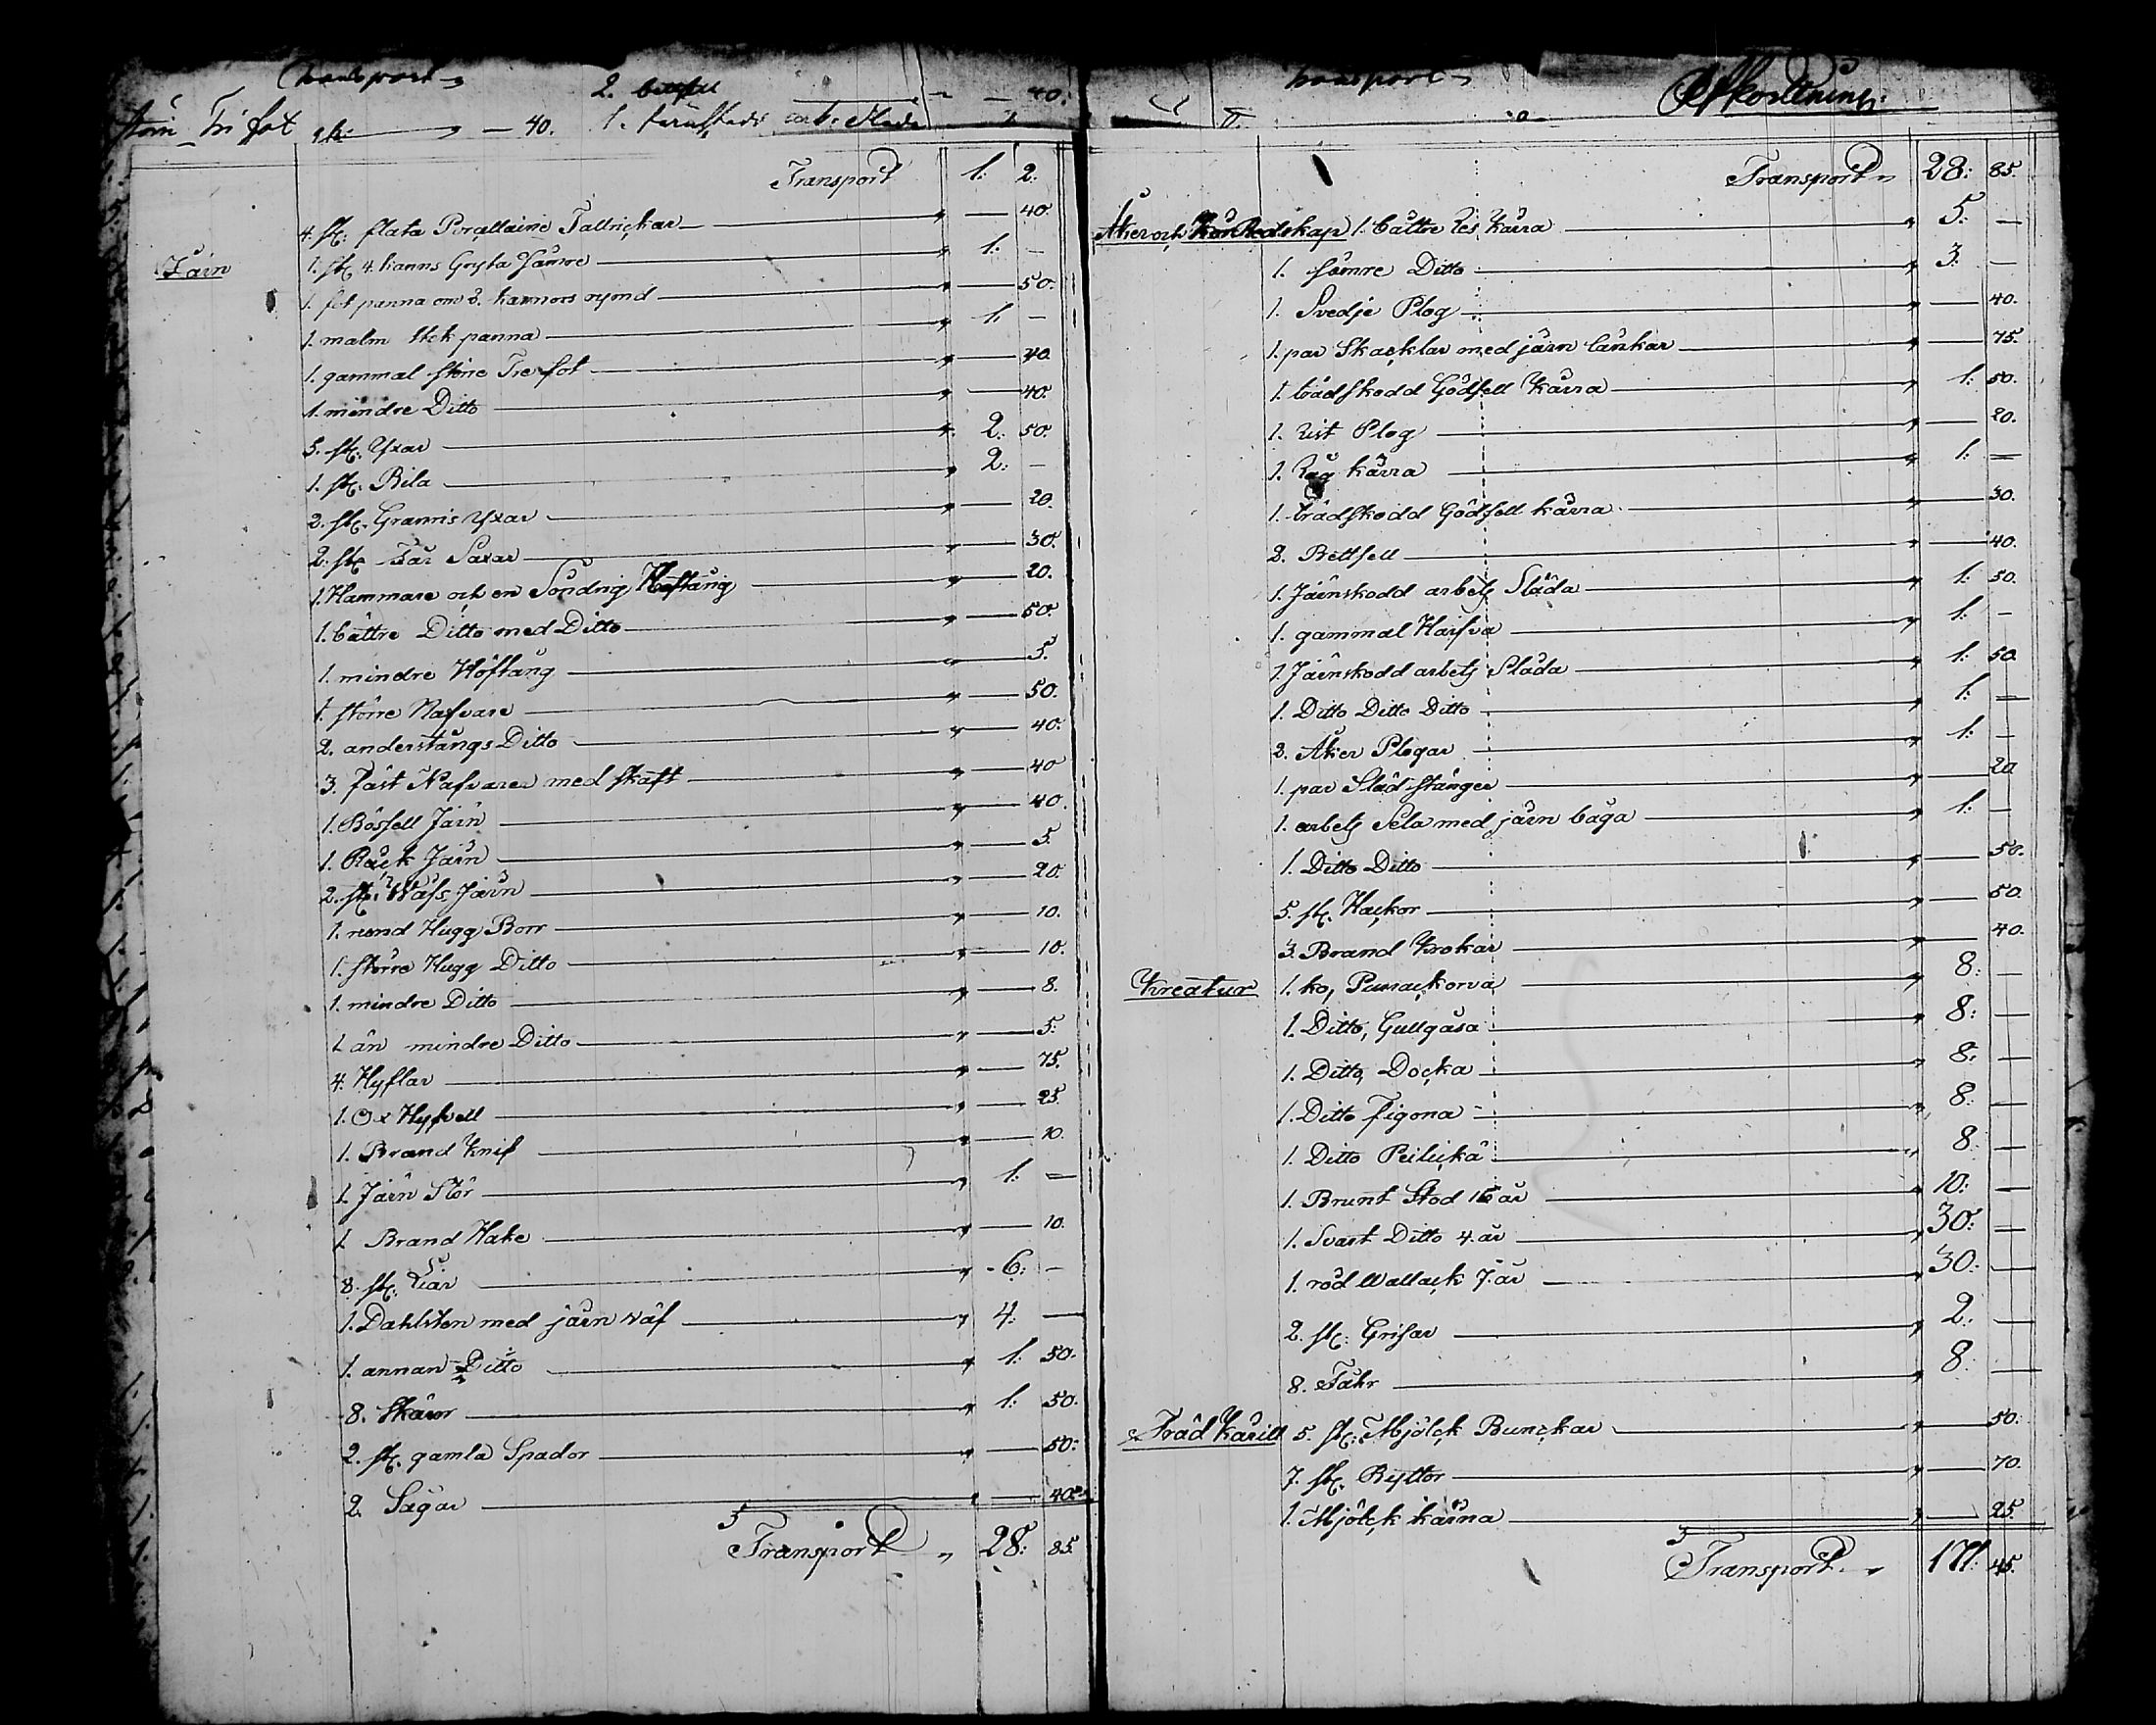 Transport
2. bettsell 40.
Tri fot 1 st: 40. 1. arb: Släda
Transport 1: 2:
4. st: flata Porcellaine Tallrickar 40.
Järn 1. st. 4. kanns Gryta Sämre 1: —
1. fot panna om 3. kannors rymd 50.
1. malm Stek panna 1. —
1. gammal större Tre fot 40
1. mindre Ditto 40.
5. st. Yxar 2: 50.
1. st. Bila 2: —
2. st. Yxar 20.
2. st. Får Saxar 30.
1. Hammare och en Söndrig Hoftång 20.
1. bättre Ditto med Ditto 50.
1. mindre Höftång 5.
1. större Nafvare 50.
2. anderstångs Ditto 40.
3. fast Nafvarer med skaft 40
1. Bössell Järn 40.
1. Räck Järn 5
2. st. Wäfs Järn 20.
1. rund Hugg Borr 10.
1. större Hugg Ditto 10.
1. mindre Ditto 8.
1. än mindre Ditto 5.
4. Hyflar 75.
1. Ox Hyfvell 25
1. Brand Knif 10.
1. Järn Stör 1. —
1. Brand Hake 10.
8. st. Liar 6: —
1. Dahlsten med järn väf 4: —
1. annan Ditto 1: 50.
8. Skäror 1: 50.
2. st. gamla Spador 50:
2. Sågar 40.
Transport 28: 85.
Transport Afkortning:
Transport 28: 85.
Åker och Kör Redskap 1. bättre Res Kärra 5: —
1. sämre Ditto 3: —
1. Svedje Plog 40.
1. par Skacklar med järn länkar 75.
1. trädskodd Gödsell Kärra 1: 50.
1. Rist Plog 20.
1. Råg kärra 1: —
1. trädskodd Gödsell kärra 30.
2. Bettsell 40.
1. Järnskodd arbets Släda 1: 50.
1. gammal Harfva 1: —
1. Järnskodd arbets Släda 1: 50
1. Ditto Ditto Ditto 1: —
2. Åker Plogar 1: —
1. par Släd stänger 20
1. arbets Sela med järn båga 1: —
1. Ditto Ditto 50.
5. st. Hackor 50.
3. Brand Krokar 40.
Kreatur 1. ko, Punackorva 8: —
1. Ditto, Gullgåsa 8: —
1. Ditto, Docka 8: —
1. Ditto Figona 8: —
1. Ditto Peilickä 8: —
1. Brunt Stod 16 år 10: —
1. Svart Ditto 4. år 30: —
1. röd Wallack 7. år 30: —
2. st. Grisar 2: —
8. Fåhr 8: —
Träd Kärill 5. st. Mjölck Bunckar 50.
7. st. Byttor 70.
1. Mjölck kärna 25
Transport 171: 45.